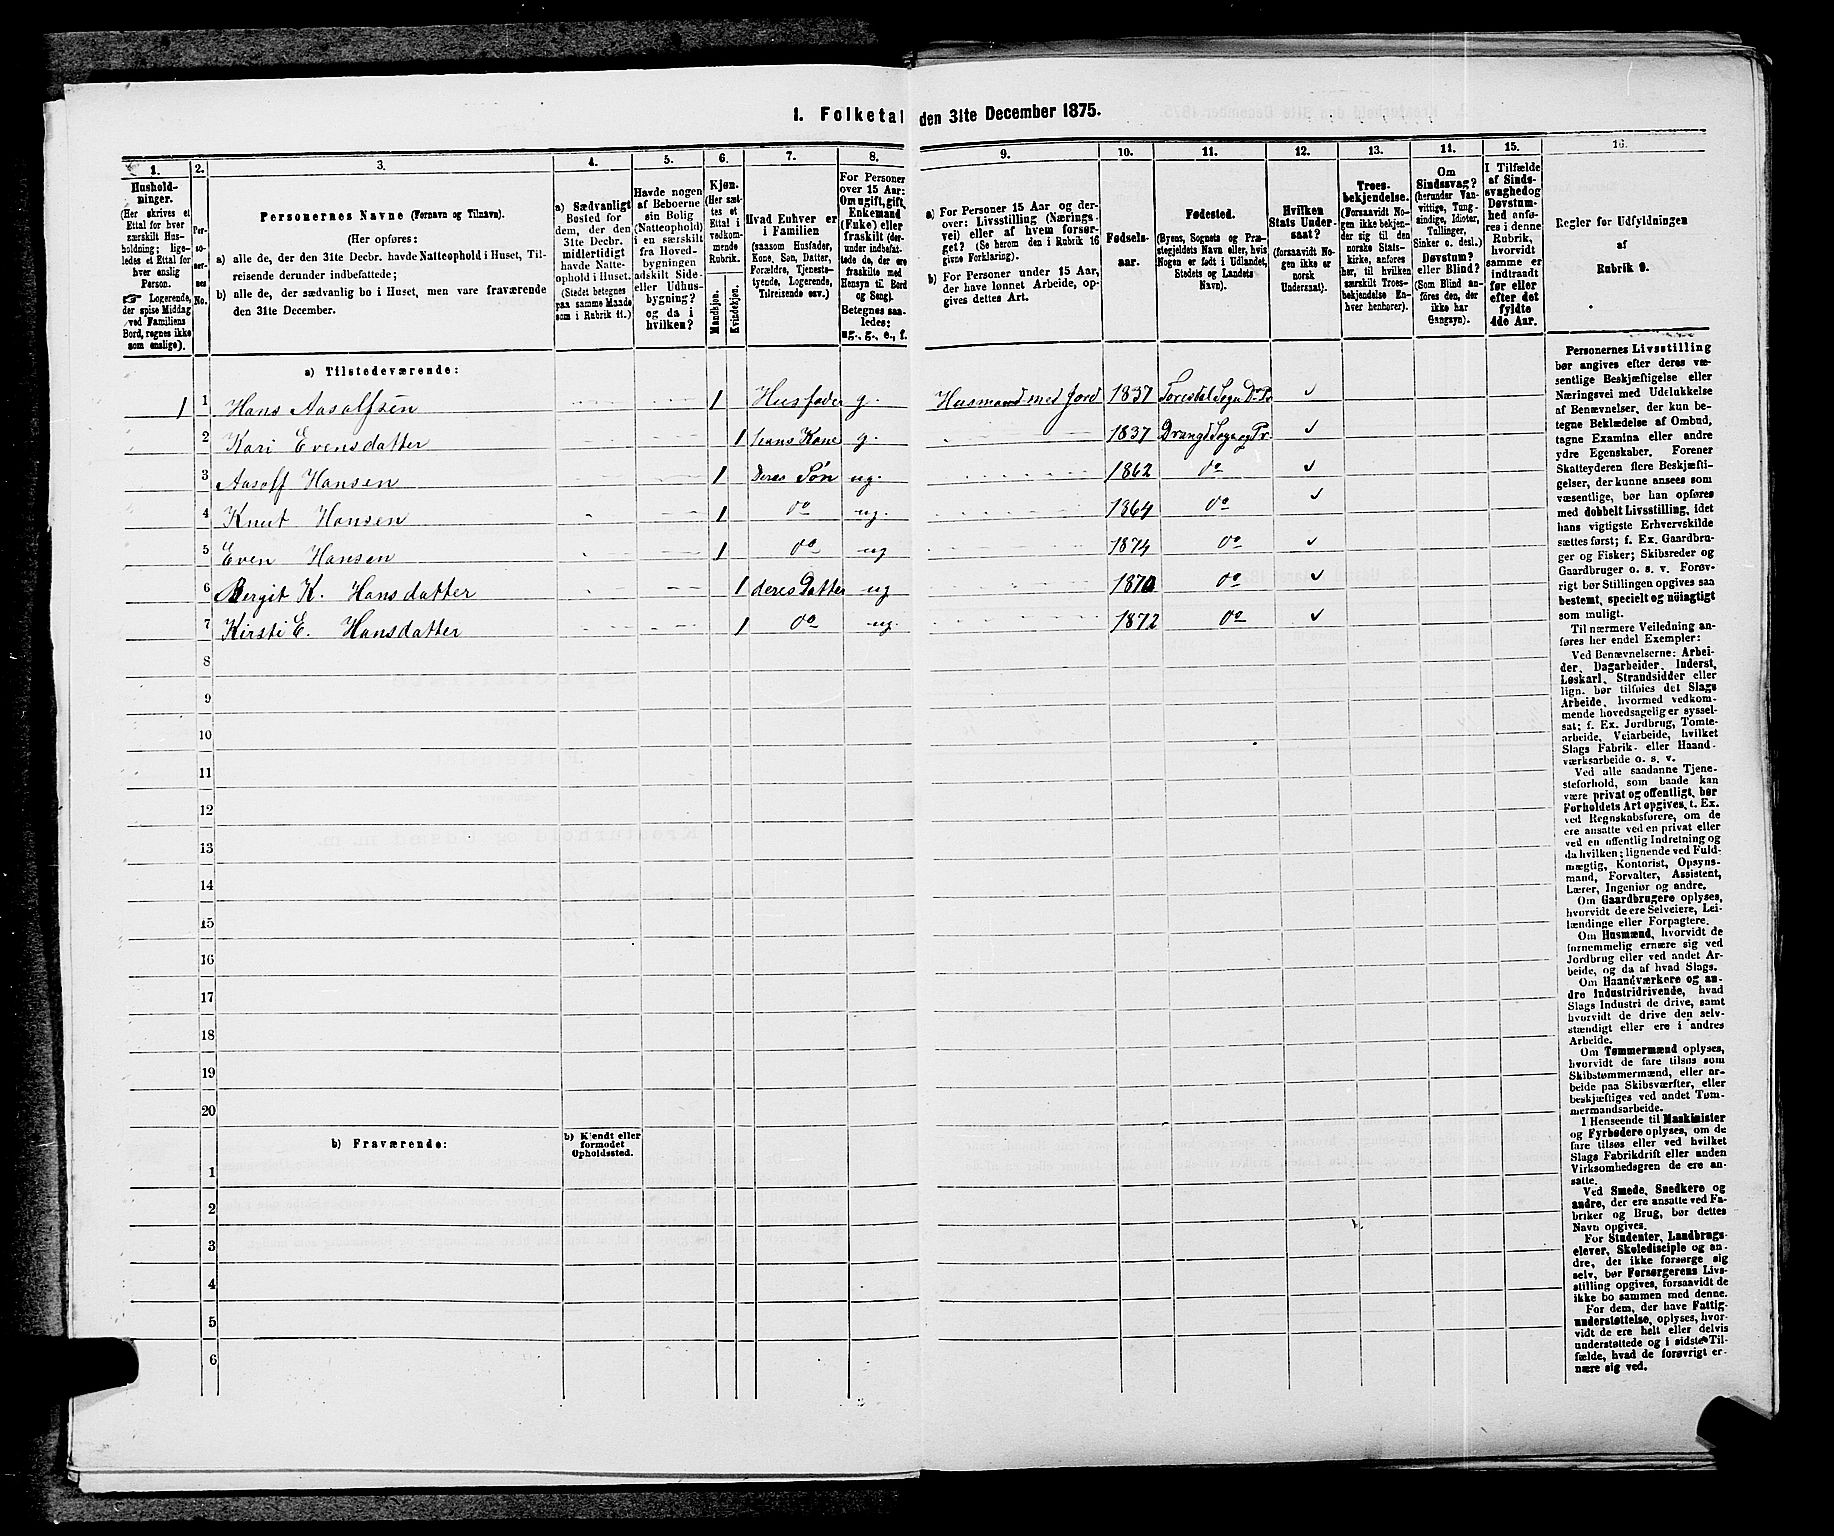 1. Folketal den 31te December 1875.
1.
2.
3.
4.
5.
6.
7.
8.
9.
10.
11.
12.
13.
11.
15.
16.
Hushold-
ninger.
(Her skrives et
Ettal for hver
særskilt Hus-
holdning; lige-
ledes et Ettal for
hver enslig
Person.
☞ Logerende,
der spise Middag
ved Familiens
Bord, regnes ikke
som enslige).
Per-
so-
ner-
nes
No.
Personernes Navne (Fornavn og Tilnavn).
(Her opføres:
a) alle de, der den 31te Decbr. havde Natteophold i Huset, Til-
reisende derunder indbefattede;
b) alle de, der sædvanlig bo i Huset, men vare fraværende
den 31te December.
a) Sædvanligt
Bosted for
dem, der den
31te Decbr.
midlertidigt
havde Natte-
ophold i Huset.
(Stedet betegnes
paa samme Maade
som i Rubrik 11.)
Havde nogen
af Beboerne
sin Bolig
(Natteophold)
i en særskilt
fra Hoved-
bygningen
adskilt Side-
eller Udhus-
bygning?
og da i
hvilken?
Kjøn.
(Her sæt-
tes et
Ettal i
vedkom-
mende
Rubrik.
Mandkjøn.
Kvindekjøn.
Hvad Enhver er
i Familien
(saasom Husfader,
Kone, Søn, Datter,
Forældre, Tjeneste-
tyende, Logerende,
Tilreisende osv.)
For Personer
over 15 Aar:
Om ugift, gift,
Enkemand
(Enke) eller
fraskilt (der-
under indbefat-
tede de, der ere
fraskilte med
Hensyn til Bord
og Seng).
Betegnes saa-
ledes:
ug., g., e., f.
a) For Personer 15 Aar og der-
over: Livsstilling (Nærings-
vei) eller af hvem forsør-
get? (Se herom den i Rubrik 16
givne Forklaring).
b) For Personer under 15 Aar,
der have lønnet Arbeide, op-
gives dettes Art.
Fødsels-
aar.
Fødested.
(Byens, Sognets og Præ-
stegjeldets Navn eller, hvis
Nogen er født i Udlandet,
Stedets og Landets
Navn).
Hvilken
Stats Under-
saat?
(forsaavidt No-
gen ikke er
norsk
Undersaat).
Troes-
bekjendelse.
(Forsaavidt No-
gen ikke bekjen-
der sig til den
norske Stats-
kirke, anføres
her, til hvilken
særskilt Troes-
bekjendelse En-
hver henhører).
Om
Sindssvag?
(herunder Van-
vittige, Tung-
sindige, Idioter,
Tullinger,
Sinker o. desl.)
Døvstum?
eller Blind?
(Som Blind an-
føres den, der
ikke har
Gangsyn).
I Tilfælde
af Sinds-
svaghed og
Døvstum-
hed anfø-
res i denne
Rubrik,
hvorvidt
samme er
indtraadt
før eller
efter det
fyldte
4de Aar.
Regler for Udfyldningen
af
Rubrik 9.
a) Tilstedeværende:
1 1 Hans Aasolfsen 1 Husfader g. Husmand med Jord 1837 Torestdl Sogn Do Pr ✓
2 Kari Evensdatter 1 hans Kone g. 1837 Drangd Sogn og Pr. ✓
3 Aasolf Hansen 1 Deres Søn ug. 1862 do ✓
4 Knut Hansen 1 do ug. 1864 do ✓
5 Even Hansen 1 do ug 1874 do ✓
6 Bergit K. Hansdatter 1 deres Datter ug 1870 do ✓
7 Kirsti E. Hansdatter 1 do ug. 1872 do ✓
8
9
10
11
12
13
14
15
16
17
18
19
20
b) Fraværende:
b) Kjendt eller
formodet
Opholdssted.
1
2
3
4
5
6
Personernes Livsstilling
bør angives efter deres væ-
sentlige Beskjæftigelse eller
Næringsvei med Udelukkelse
af Benævnelser, der kun be-
tegne Beklædelse af Ombud,
tagne Examina eller andre
ydre Egenskaber. Forener
Skatteyderen flere Beskjæfti-
gelser, der kunne ansees som
væsentlige, bør han opføres
med dobbelt Livsstilling, idet
hans vigtigste Erhvervskilde
sættes først; f. Ex. Gaardbru-
ger og Fisker; Skibsreder og
Gaardbruger o. s. v. Forøv-
rigt bør Stillingen opgives saa
bestemt, specielt og nøiagtigt
som muligt.
Til nærmere Veiledning an-
føres her endel Exempler:
Ved Benævnelserne: Arbei-
der, Dagarbeider, Inderst,
Løskarl, Strandsidder eller
lign. bør tilføies det Slags
Arbeide, hvormed vedkom-
mende hovedsagelig er syssel-
sat; f. Ex. Jordbrug, Tomte-
arbeide, Veiarbeide, hvilket
Slags Fabrik- eller Haand-
værksarbeide o. s. v.
Ved alle saadanne Tjene-
steforhold, som baade kan
være privat og offentligt, bør
Forholdets Art opgives, t. Ex.
ved Regnskabsførere, om de
ere ansatte ved en privat eller
ved en offentlig Indretning og
da hvilken; lignende ved Fuld-
mægtig, Kontorist, Opsyns-
mand, Forvalter, Assistent,
Lærer, Ingeniør og andre.
Om Gaardbrugere oplyses,
hvorvidt de ere Selveiere, Lei-
lændinge eller Forpagtere.
Om Husmænd, hvorvidt de
fornemmelig ernære sig ved
Jordbrug eller ved andet Ar-
beide, og da af hvad Slags.
Om Haandværkere og an-
dre Industridrivende, hvad
Slags Industri de drive, samt
hvorvidt de drive den selv-
stændigt eller ere i andres
Arbeide.
Om Tømmermænd oplyses,
hvorvidt de fare tilsøs som
Skibstømmermænd, eller ar-
beide paa Skibsværfter, eller
beskjæftiges ved andet Tøm-
mermandsarbeide.
I Henseende til Maskinister
og Fyrbødere oplyses, om de
fare tilsøs eller ved hvilket
Slags Fabrikdrift eller anden
Virksomhedsgren de ere an-
satte.
Ved Smede, Snedkere og
andre, der ere ansatte ved Fa-
briker og Brug, bør dettes
Navn opgives.
For Studenter, Landbrugs-
elever, Skoledisciple og an-
dre, der ikke forsørge sig
selv, bør Forsørgerens Livs-
stilling opgives, forsaavidt de
ikke bo sammen med denne.
For dem, der have Fattig-
understøttelse, oplyses, hvor-
vidt de ere helt eller delvis
understøttede og i sidste Til-
fælde, hvad de forøvrigt er-
nære sig ved.